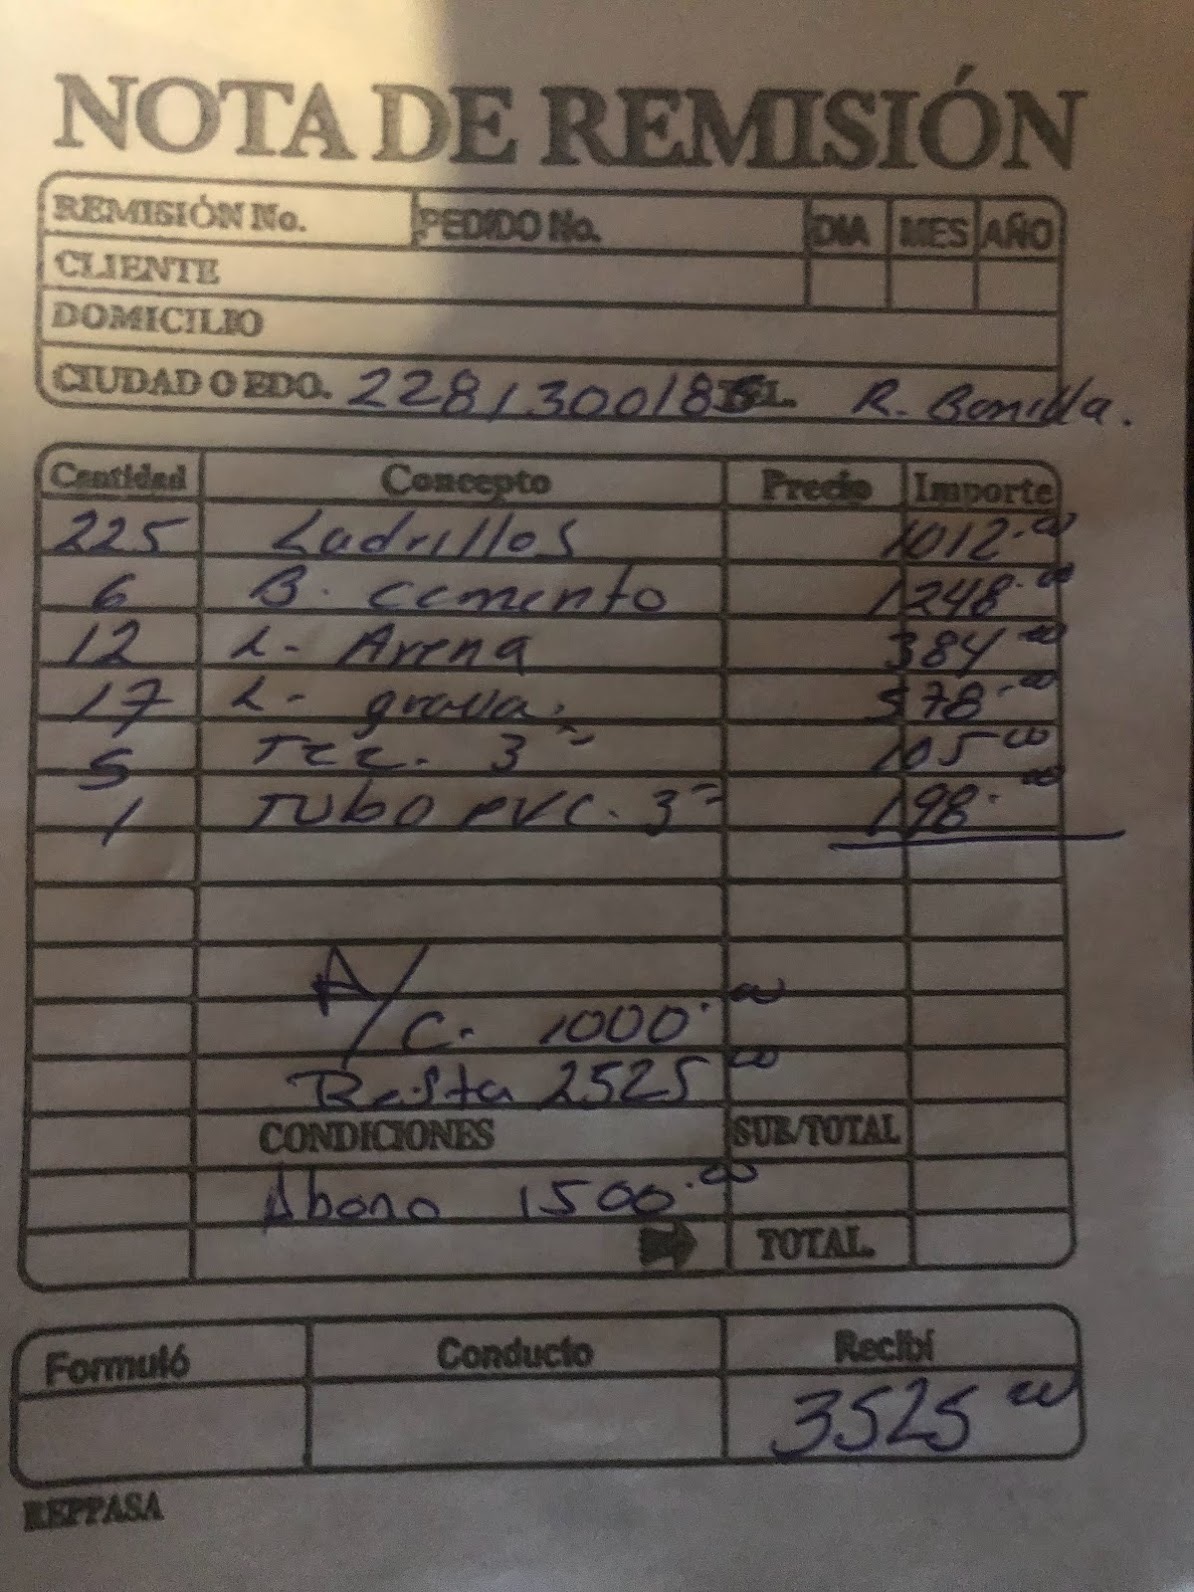 NOTA DE REMISIÓN
REMISIÓN No. PEDIDO No. DIA MES AÑO
CLIENTE
DOMICILIO
CIUDAD O EDO. 228130018 TEL. R. Bonilla.
Cantidad Concepto Precio Importe
225 Ladrillos 1012.00
6 B. cemento 1248.00
12 L. Arena 384.00
17 L. grava. 578.00
5 3" 105.00
1 TUBO PVC. 3" 198.00
A/C. 1000.00
Resta 2525.00
CONDICIONES SUB/TOTAL
Abono 1500.00
TOTAL
Formuló Conducto Recibí
3525.00
REPPASA